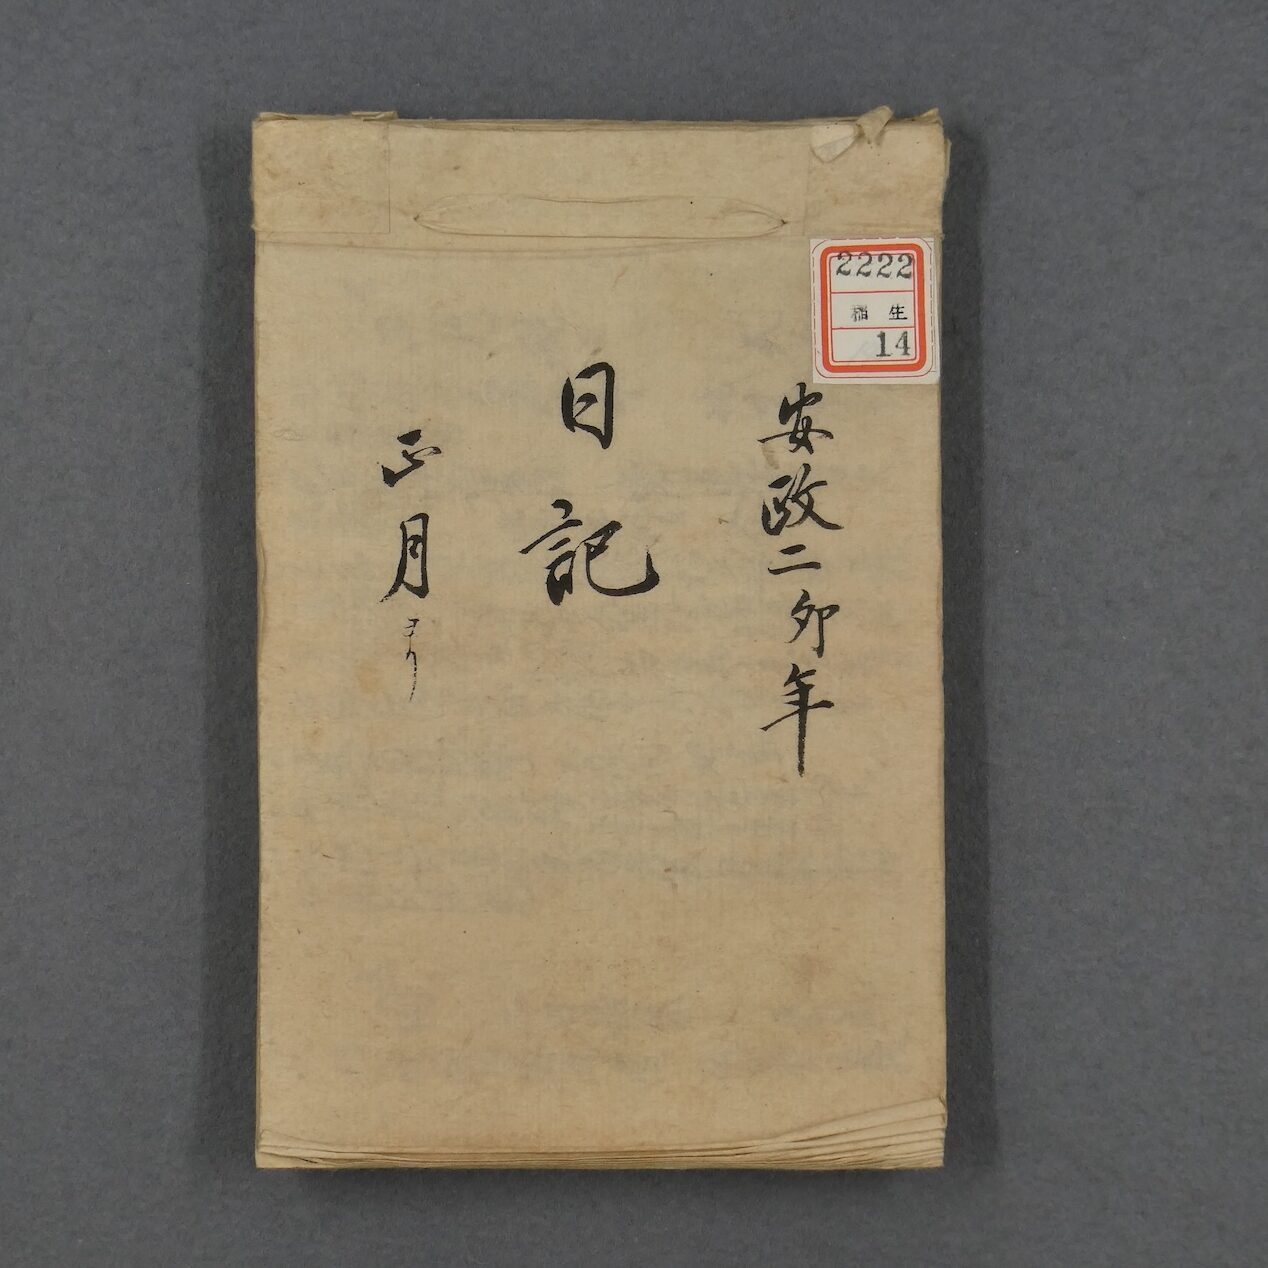 安政二卯年
日記
正月ヨリ
2222
稲生
14